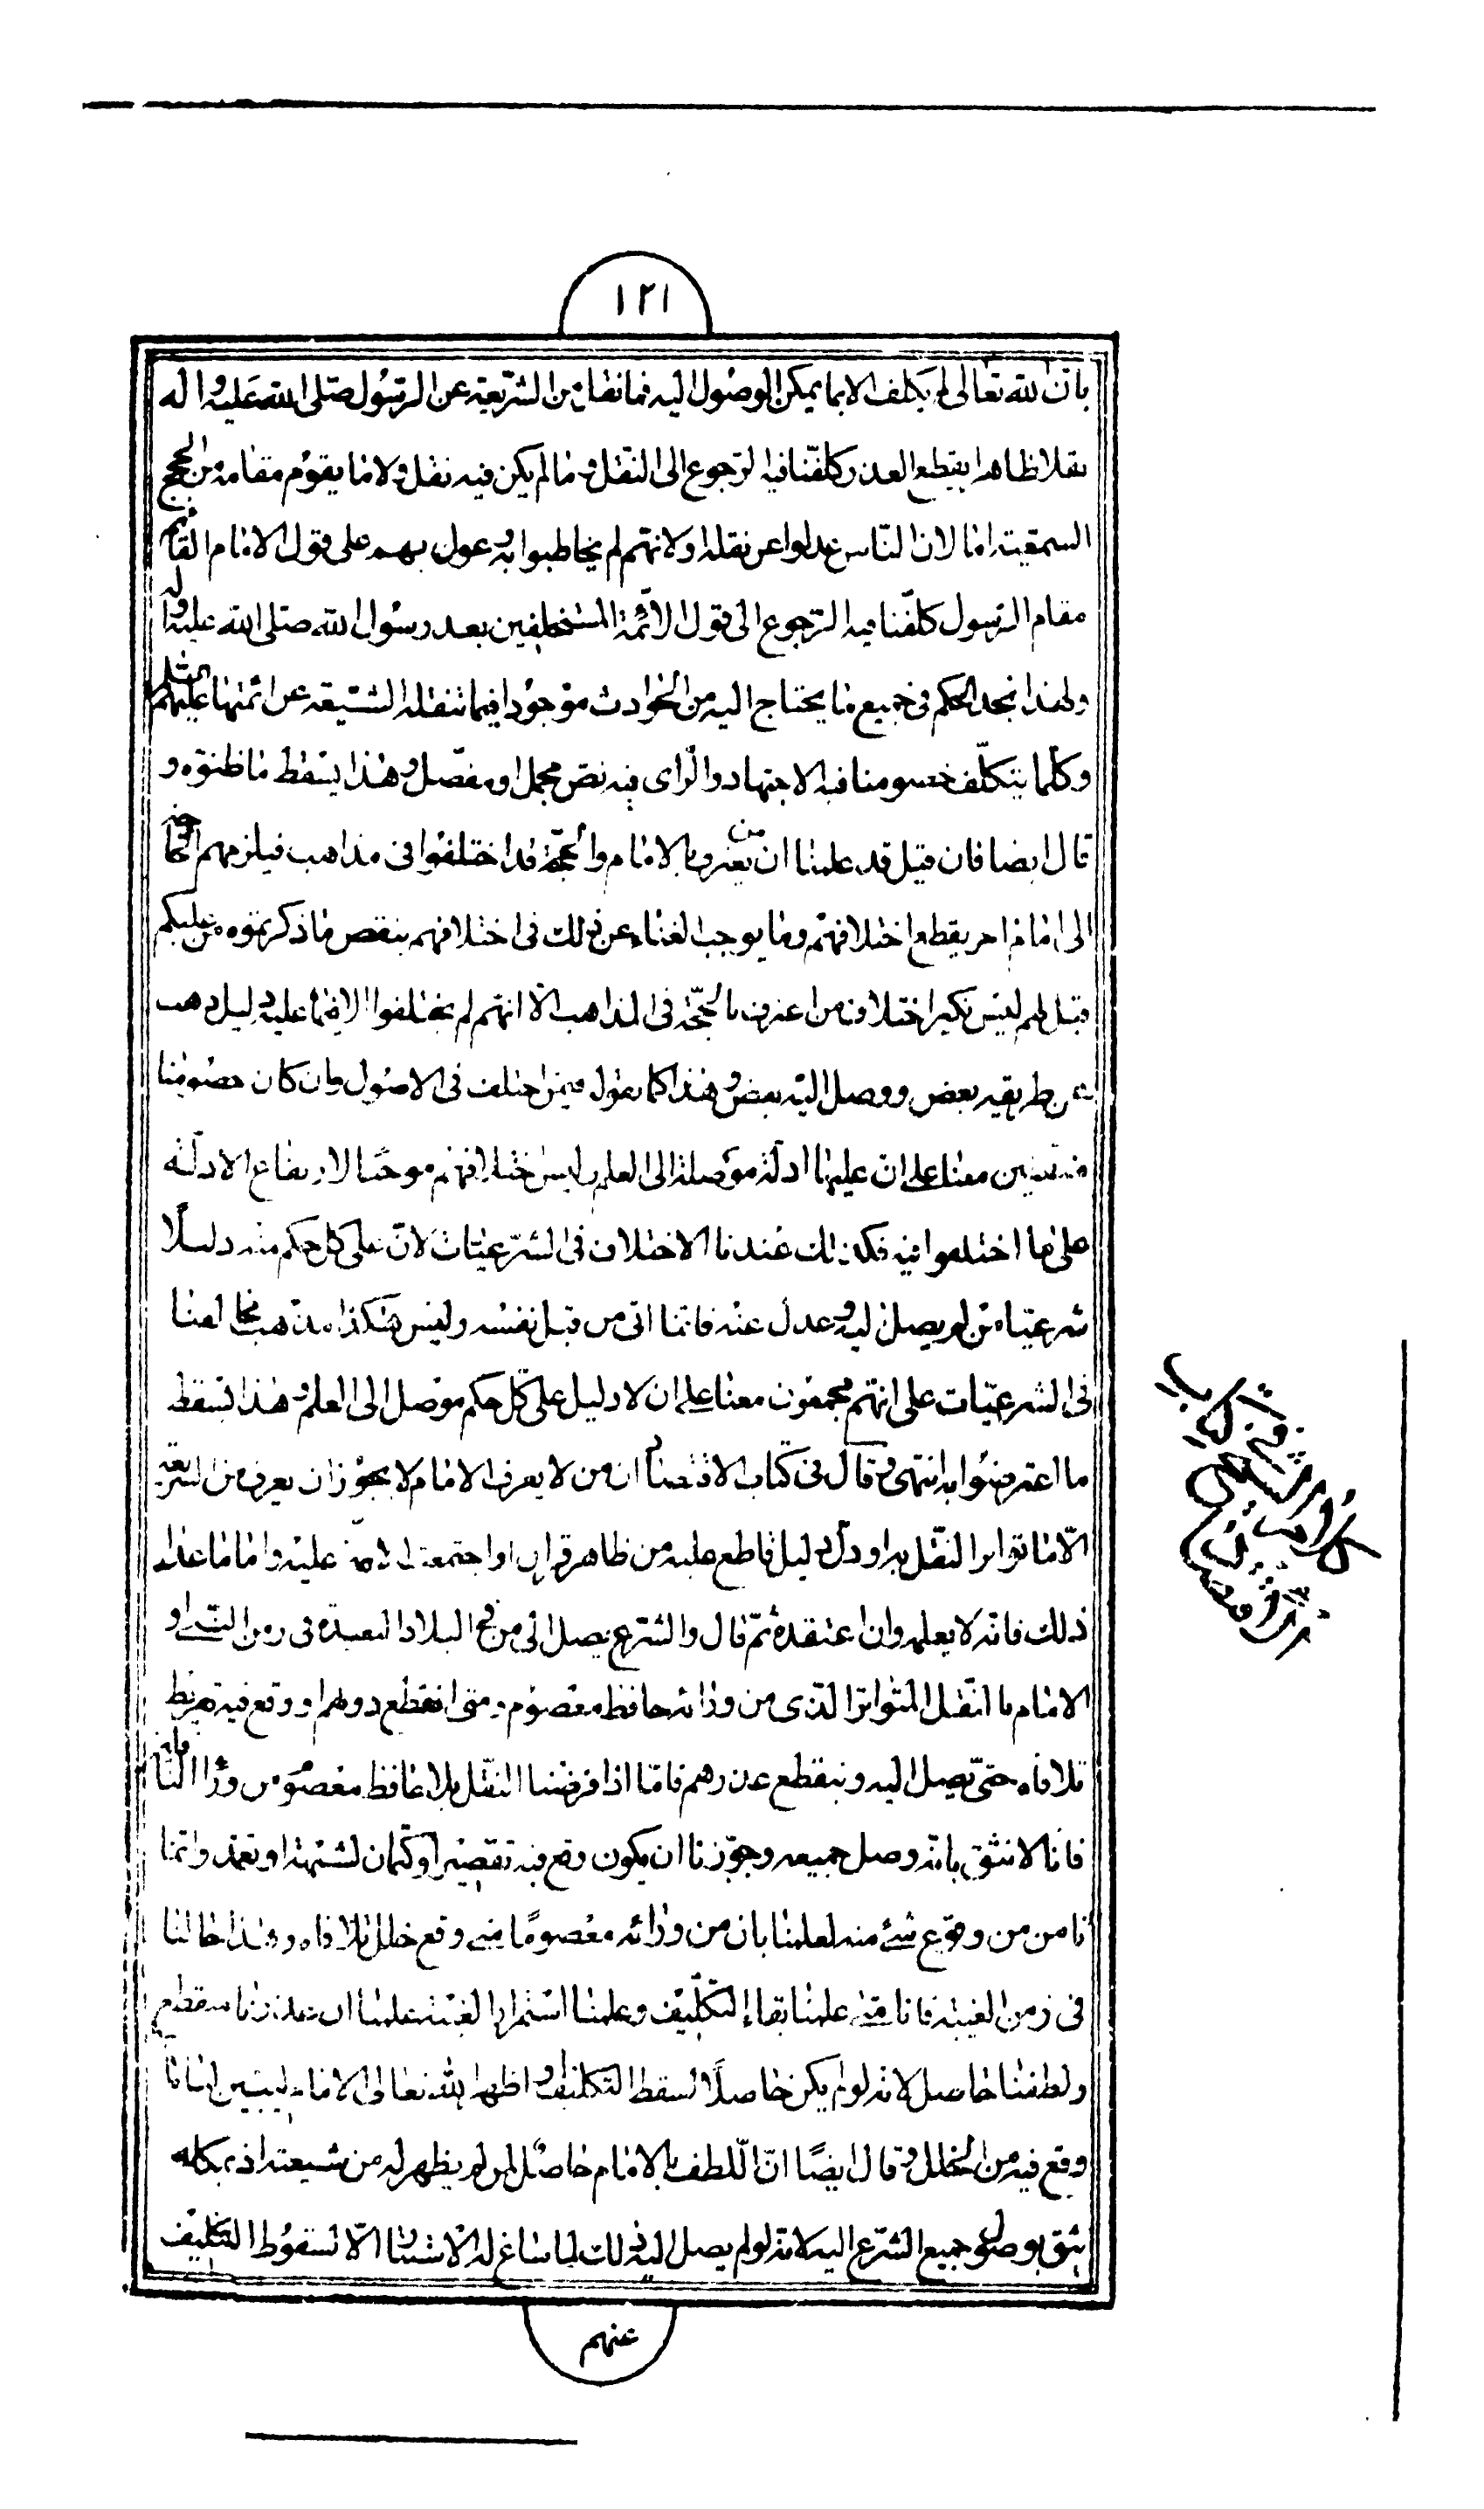 ١٢١
بان الله تعالى لم يكلف الا بما يمكن الوصول اليه فما نقل من الشريعة عن الرسول صلى الله عليه واله
نقلا ظاهرا يقطع العذر كلفنا فيه الرجوع الى النقل وما لم يكن فيه نقل ولا ما يقوم مقامه من الحجج
السمعية اما لان الناس عدلوا عن نقله او لانهم لم يخاطبوا به وعول بهم على قول الامام القائم
مقام الرسول كلفنا فيه الرجوع الى قول الائمة المستخلفين بعد رسول الله صلى الله عليه واله
ولهذا نجد الحكم في جميع ما يحتاج اليه من الحوادث موجودا فيما تنقله الشيعة عن ائمتها عليهم
وكلما يتكلف خصومنا فيه الاجتهاد والراى فيه نص مجمل او مفصل وهذا يسقط ما ظنوه و
قال ايضا فان قيل قد علمنا ان من يعترف بالامام والحجة قد اختلفوا في مذاهب فيلزمهم الحاجة
الى امام اخر يقطع اختلافهم وما يوجب الغناء عن ذلك في اختلافهم ينقض ما ذكرتموه من عليكم
قيل لهم ليس نكير اختلاف من اعترف بالحجة في المذاهب الا انهم لم يختلفوا الا فيما عليه دليل ذهب
عن طريقه بعض ووصل اليه بعض وهذا كما نقول فيمن اختلف في الاصول وان كان خصومنا
متفقين معنا على ان عليها ادلة موصلة الى العلم وليس اختلافهم موجبا لارتفاع الادلة
على ما اختلفوا فيه فكذلك عندنا الاختلاف في الشرعيات لان على كل حكم منه دليلا
شرعيا من لم يصل اليه وعدل عنه فانما اتى من قبل نفسه وليس هكذا مذهب مخالفنا
في الشرعيات على انهم مجمعون معنا على ان لا دليل على كل حكم موصل الى العلم وهذا يسقط
ما اعترضوا به انتهى وقال في كتاب الاقتصاد ان من لا يعرف الامام لا يجوز ان يعرف من الشريعة
الا ما تواتر النقل به او دل دليل قاطع عليه من ظاهر قران او اجتمعت الامة عليه واما ما عدا
ذلك فانه لا يعلمه وان اعتقده ثم قال والشرع يصل الى من في البلاد البعيدة في زمن النبي او
الامام بالنقل المتواتر الذي من ورائه حافظ معصوم ومتى انقطع دونهم او وقع فيه تفريط
تلافاه حتى يصل اليه وينقطع عذرهم فاما اذا فرضنا النقل بلا حافظ معصوم من وراء الناقلين
فانا لا نثق بانه وصل جميعه وجوزنا ان يكون وقع فيه تقصير او كتمان لشبهة او تعمد وانما
نامن من وقوع شئ منه لعلمنا بان من ورائه معصوما متى وقع خلل تلافاه وهذا حالنا
في زمن الغيبة فانا متى علمنا بقاء التكليف وعلمنا استمرار الغيبة علمنا ان عذرنا منقطع
ولطفنا حاصل لانه لو لم يكن حاصلا لسقط التكليف او اظهر الله تعالى الامام ليبين لنا ما
وقع فيه من الخلل وقال ايضا ان اللطف بالامام حاصل لمن لم يظهر له من شيعته اذ بمكانه
يثق بوصول جميع الشرع اليه لانه لو لم يصل اليه ذلك لما ساغ له الاستتار الا لسقوط التكليف
عنهم